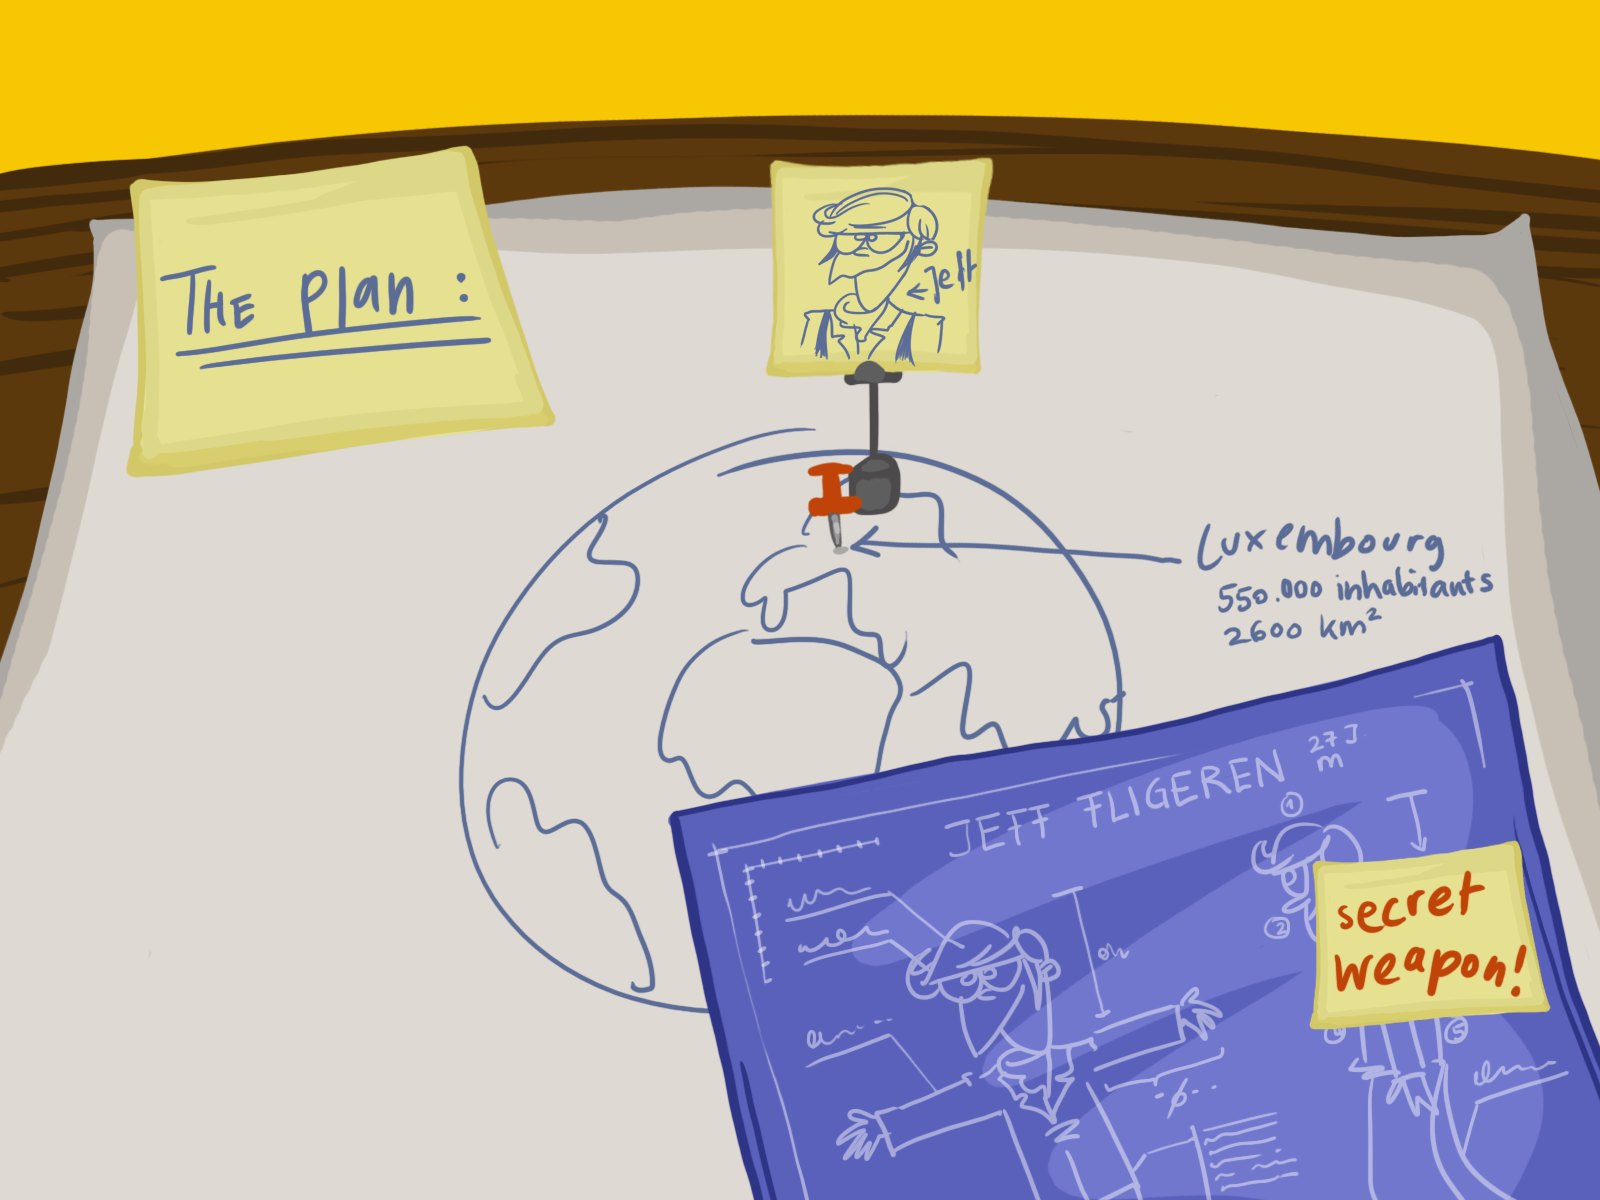 THE plan :
Jeff
Luxembourg
550.000 inhabitants
2600 km²
JEFF FLIGEREN 27 J.
m
1
2
secret
weapon!
5